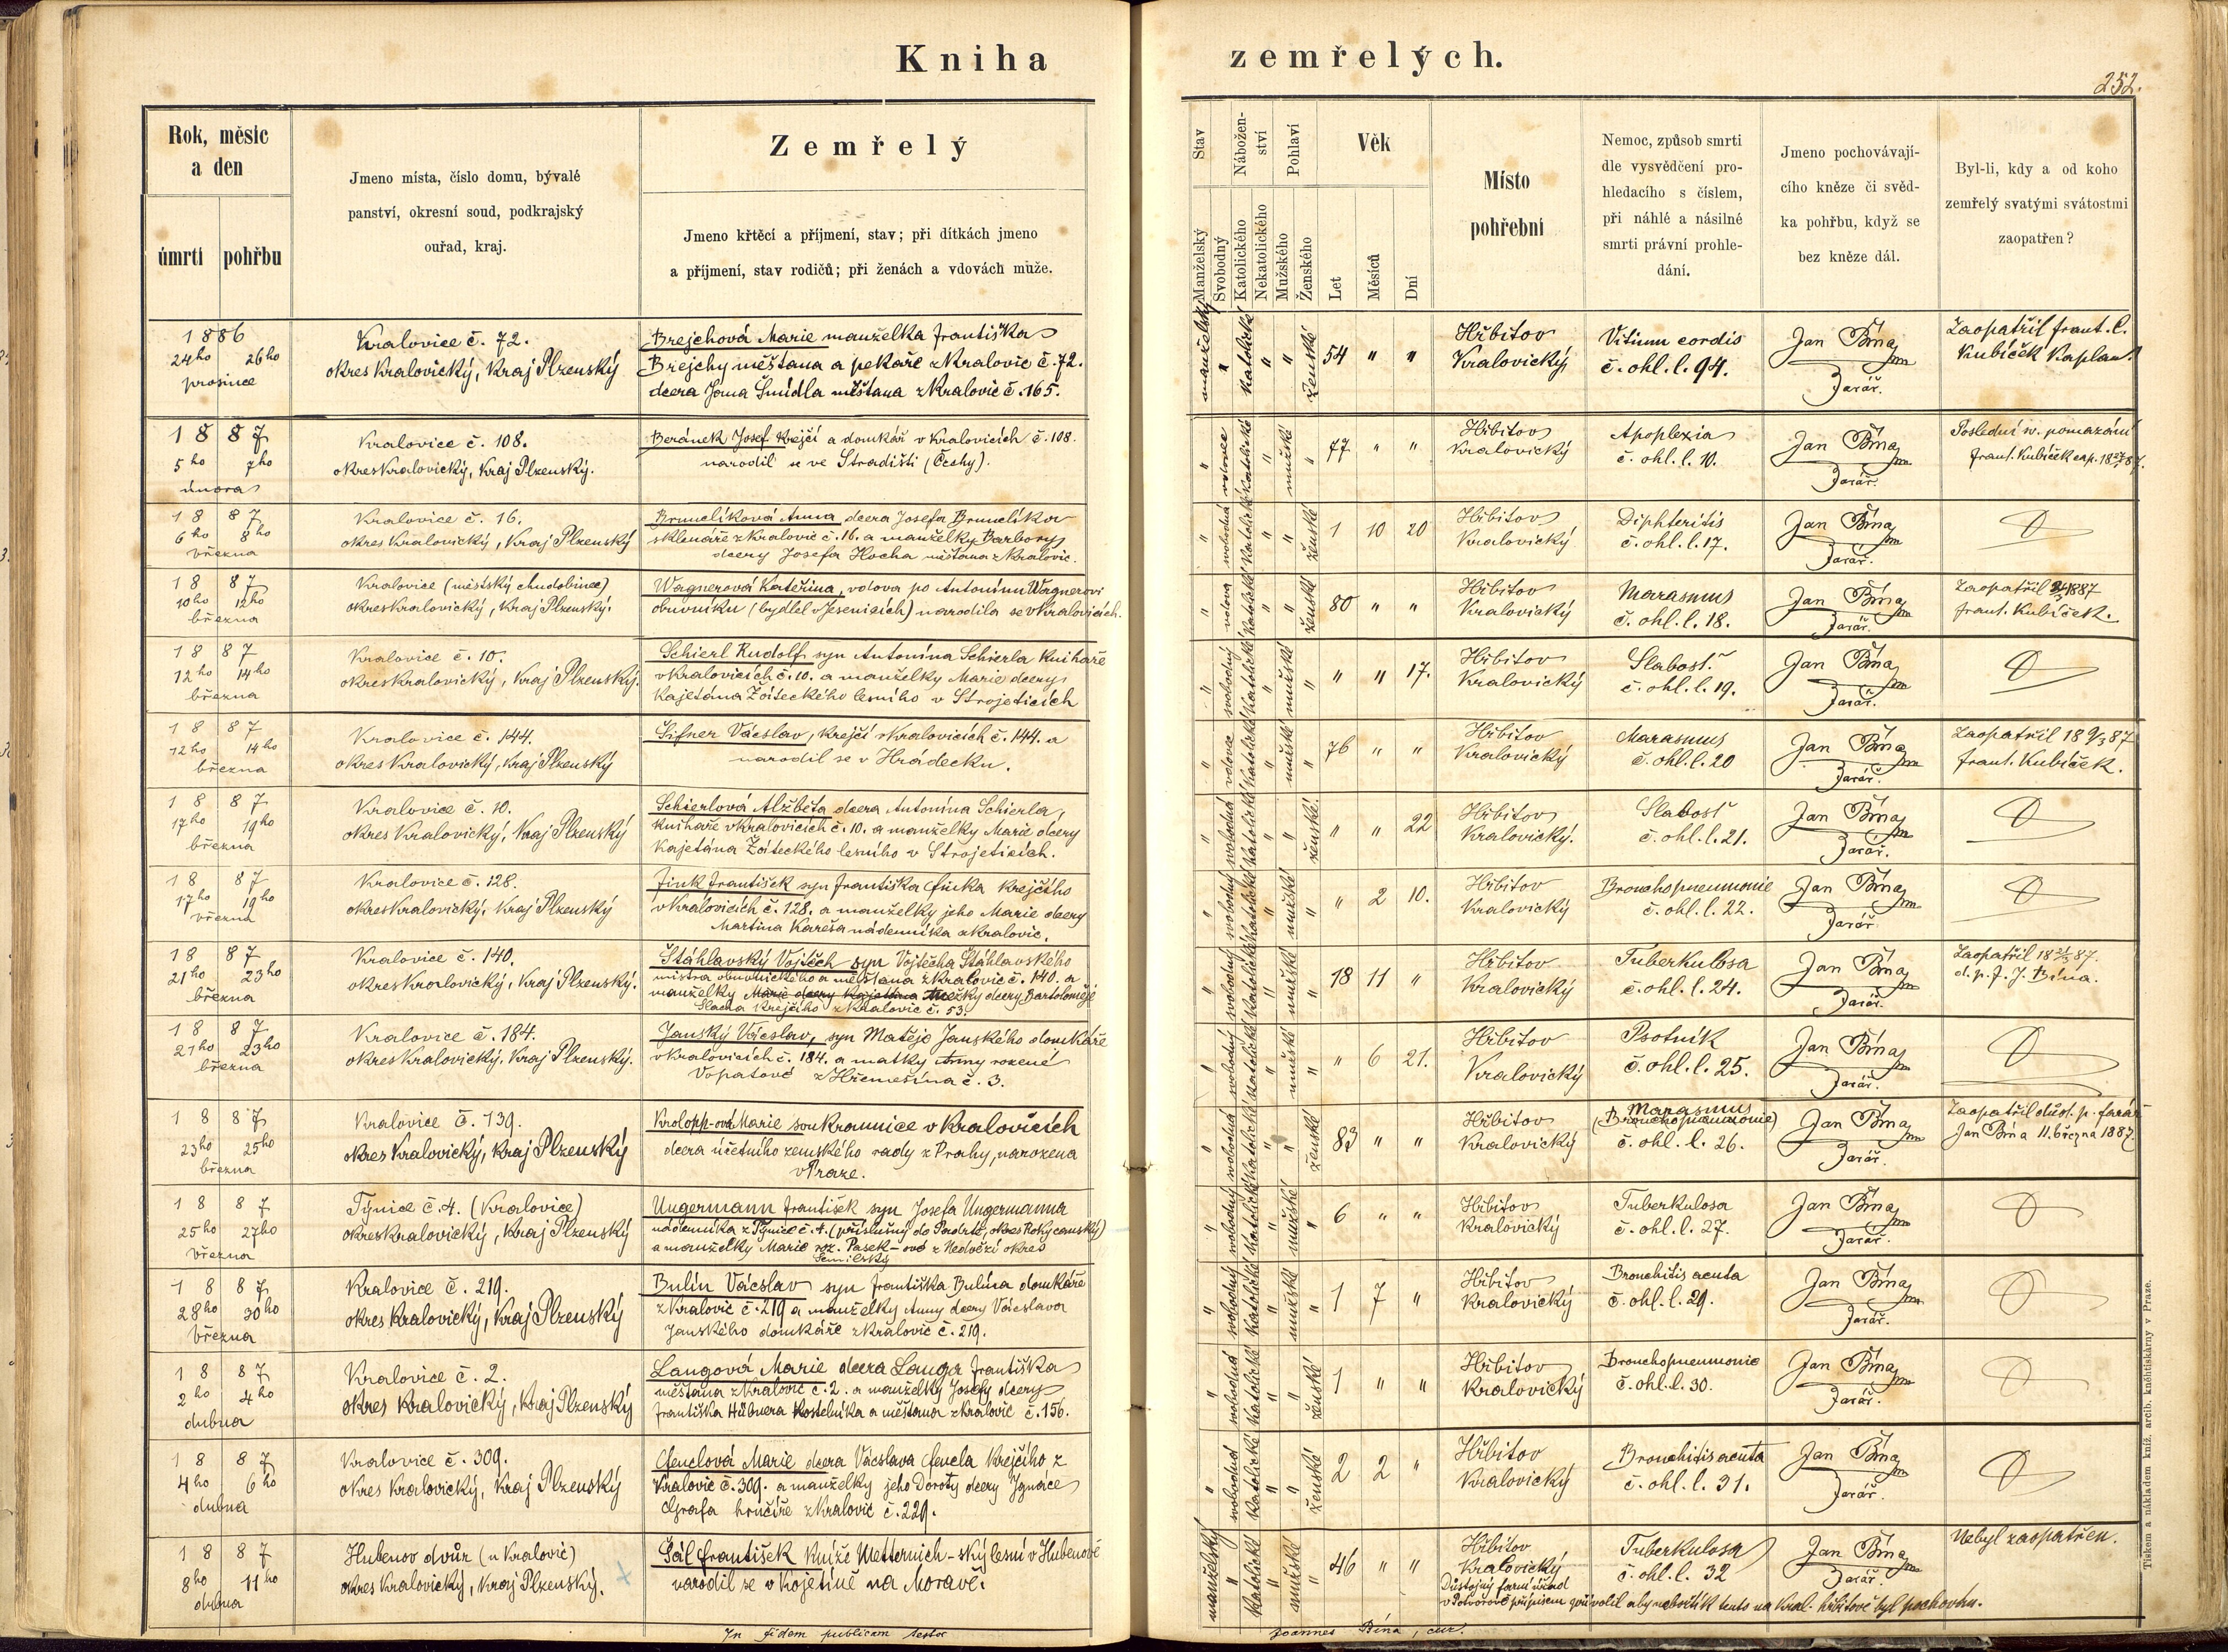 Kniha zemřelých.
252.
Rok, měsíc
a den
úmrtí pohřbu
Jmeno místa, číslo domu, bývalé
panství, okresní soud, podkrajský
ouřad, kraj.
Zemřelý
Jmeno křtěcí a příjmení, stav; při dítkách jmeno
a příjmení, stav rodičů; při ženách a vdovách muže.
Stav
Manželský
Svobodný
Nábožen-
ství
Katolického
Nekatolického
Pohlaví
Mužského
Ženského
Věk
Let
Měsíců
Dní
Místo
pohřební
Nemoc, způsob smrti
dle vysvědčení pro-
hledacího s číslem,
při náhlé a násilné
smrti právní prohle-
dání.
Jmeno pochovávají-
cího kněze či svěd-
ka pohřbu, když se
bez kněze dál.
Byl-li, kdy a od koho
zemřelý svatými svátostmi
zaopatřen?
1886
24ho 26ho
prosince
Kralovice č. 72.
okres Kralovický, Kraj Plzenský
Brejchová Marie manželka Františka
Brejchy měšťana a pekaře z Kralovic č. 72.
dcera Jana Šmídla měšťana z Kralovic č. 165.
manželský " katolické " " ženské 54 " "
Hřbitov
Kralovický
Vitium cordis
č. ohl. l. 94.
Jan Bína
farář.
Zaopatřil Frant. C.
Kubíček Kaplan.
1887
5ho 7ho
února
Kralovice č. 108.
okres Kralovický, Kraj Plzenský.
Beránek Josef Krejčí a domkář v Kralovicích č. 108.
narodil se ve Stradišti (Čechy).
" vdovec katolické " mužské " 77 " "
Hřbitov
Kralovický
Apoplexia
č. ohl. l. 10.
Jan Bína
farář.
Poslední sv. pomazání
Frant. Kubíček cap.
1887
6ho 8ho
března
Kralovice č. 16.
okres Kralovický, Kraj Plzenský
Brunclíková Anna dcera Josefa Brunclíka
sklenáře z Kralovic č. 16. a manželky Barbory
dcery Josefa Hocha měšťana z Kralovic.
" svobodná katolické " " ženské 1 10 20
Hřbitov
Kralovický
Diphteritis
č. ohl. l. 17.
Jan Bína
farář.
1887
10ho 12ho
března
Kralovice (městský chudobinec)
okres Kralovický, Kraj Plzenský.
Wagnerová Kateřina, vdova po Antonínu Wagnerovi
obuvníku (bydlel v Jesenicích) narodila se v Kralovicích.
" vdova katolické " " ženské 80 " "
Hřbitov
Kralovický
Marasmus
č. ohl. l. 18.
Jan Bína
farář.
Zaopatřil 1887
Frant. Kubíček.
1887
12ho 14ho
března
Kralovice č. 10.
okres Kralovický, Kraj Plzenský.
Schierl Rudolf syn Antonína Schierla Knihaře
v Kralovicích č. 10. a manželky Marie dcery
Kajetána Žáiteckého lesního v Strojeticích
" svobodný katolické " mužské " " " 17.
Hřbitov
Kralovický
Slabosť
č. ohl. l. 19.
Jan Bína
farář.
1887
12ho 14ho
března
Kralovice č. 144.
okres Kralovický, Kraj Plzenský
Šifner Václav, krejčí v Kralovicích č. 144. a
narodil se v Hrádecku.
" vdovec katolické " mužské " 76 " "
Hřbitov
Kralovický
Marasmus
č. ohl. l. 20
Jan Bína
farář.
Zaopatřil 18 9/3 87
Frant. Kubíček.
1887
17ho 19ho
března
Kralovice č. 10.
okres Kralovický, Kraj Plzenský
Schierlová Alžběta dcera Antonína Schierla,
knihaře v Kralovicích č. 10. a manželky Marie dcery
Kajetána Žáiteckého lesního v Strojeticích.
" svobodná katolické " " ženské " " 22
Hřbitov
Kralovický.
Slabosť
č. ohl. l. 21.
Jan Bína
farář.
1887
17ho 19ho
března
Kralovice č. 128.
okres Kralovický, Kraj Plzenský
Fink František syn Františka Finka Krejčího
v Kralovicích č. 128. a manželky jeho Marie dcery
Martina Kareša nádenníka z Kralovic.
" svobodný katolické " mužské " " 2 10.
Hřbitov
Kralovický
Bronchopneumonie
č. ohl. l. 22.
Jan Bína
farář.
1887
21ho 23ho
března
Kralovice č. 140.
okres Kralovický, Kraj Plzenský.
Štáhlavský Vojtěch syn Vojtěcha Štáhlavského
mistra obuvnického a měšťana z Kralovic č. 140. a
manželky Marie dcery Kajetána dcery Bartoloměje
Slacha Krejčího z Kralovic č. 53.
" svobodný katolické " mužské " 18 11 "
Hřbitov
Kralovický
Tuberkulosa
č. ohl. l. 24.
Jan Bína
farář.
Zaopatřil
d. p. F. J. Bína.
1887
21ho 23ho
března
Kralovice č. 184.
okres Kralovický. Kraj Plzenský.
Janský Václav, syn Matěje Janského domkáře
v Kralovicích č. 184. a matky Anny rozené
Vopatové z Hřemešína č. 3.
" svobodný katolické " mužské " " 6 21.
Hřbitov
Kralovický
Psotník
č. ohl. l. 25.
Jan Bína
farář.
1887
23ho 25ho
března
Kralovice č. 139.
okres Kralovický, Kraj Plzenský
Krolopp-ová Marie soukromnice v Kralovicích
dcera účetního zemského rady z Prahy, narozena
v Praze.
" svobodná katolické " " ženské 83 " "
Hřbitov
Kralovický
Marasmus
(Bronchopneumonie)
č. ohl. l. 26.
Jan Bína
farář.
Zaopatřil důst. p. farář
Jan Bína 11. března 1887.
1887
25ho 27ho
března
Týnice č. 4. (Kralovice)
okres Kralovický, Kraj Plzenský
Ungermann František syn Josefa Ungermanna
nádenníka z Týnice č. 4. (příslušný do Padrtě, okres Rokycanský)
a manželky Marie roz. Pasek-ové z Nedvězí okres
Semilský
" svobodný katolické " mužské " 6 " "
Hřbitov
Kralovický
Tuberkulosa
č. ohl. l. 27.
Jan Bína
farář.
1887
28ho 30ho
března
Kralovice č. 219.
okres Kralovický, Kraj Plzenský
Bulín Václav syn Františka Bulína domkáře
z Kralovic č. 219 a manželky Anny dcery Václava
Janského domkáře z Kralovic č. 219.
" svobodný katolické " mužské " 1 7 "
Hřbitov
Kralovický
Bronchitis acuta
č. ohl. l. 29.
Jan Bína
farář.
1887
2ho 4ho
dubna
Kralovice č. 2.
okres Kralovický, Kraj Plzenský
Langová Marie dcera Langa Františka
měšťana z Kralovic č. 2. a manželky Josefy dcery
Františka Hübnera Kostelníka a měšťana z Kralovic č. 156.
" svobodná katolické " " ženské 1 " "
Hřbitov
Kralovický
Bronchopneumonie
č. ohl. l. 30.
Jan Bína
farář.
1887
4ho 6ho
dubna
Kralovice č. 309.
okres Kralovický, Kraj Plzenský
Fenclová Marie dcera Václava Fencla Krejčího z
Kralovic č. 309. a manželky jeho Doroty dcery Ignáce
Grafa hrnčíře z Kralovic č. 229.
" svobodná katolické " " ženské 2 2 "
Hřbitov
Kralovický
Bronchitis acuta
č. ohl. l. 31.
Jan Bína
farář.
1887
8ho 11ho
dubna
Hubenov dvůr (u Kralovic)
okres Kralovický, Kraj Plzenský.
Šál František Kníže Metternich-ský lesní v Hubenově
narodil se v Kojetíně na Moravě.
manželský " katolické " mužské " 46 " "
Hřbitov
Kralovický
Tuberkulosa
č. ohl. l. 32
Jan Bína
farář.
Nebyl zaopatřen.
Důstojný farní úřad
v Potvorově přípisem svolil aby nebožtík tento na Kral. hřbitově byl pochován.
In fidem publicam testor
Joannes Bína, cur.
Tiskem a nákladem kníž. arcib. knihtiskárny v Praze.